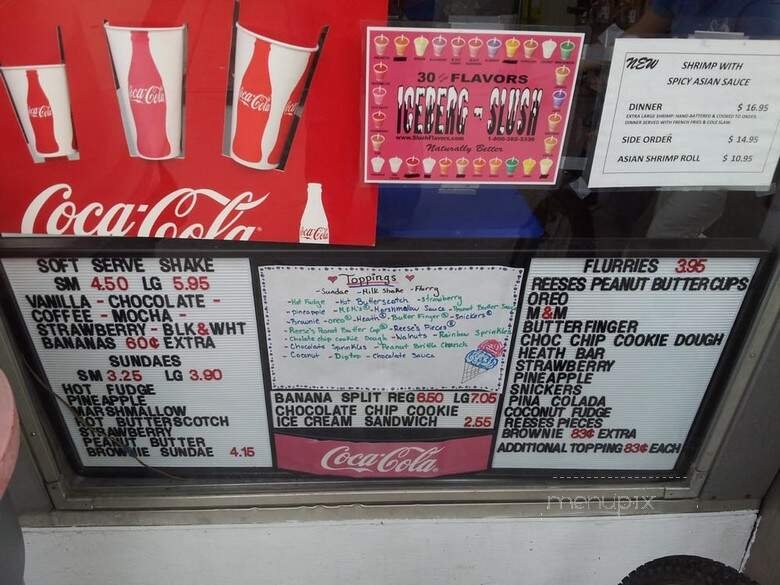 Coca-Cola
Coca-Cola
Coca-Cola
Coca-Cola
Coca-Cola
30 FLAVORS
ICEBERG - SLUSH
www.SlushFlavors.com 1-800-362-5336
Naturally Better
NEW SHRIMP WITH
SPICY ASIAN SAUCE
DINNER $ 16.95
EXTRA LARGE SHRIMP HAND BATTERED & COOKED TO ORDER
DINNER SERVED WITH FRENCH FRIES & COLE SLAW
SIDE ORDER $ 14.95
ASIAN SHRIMP ROLL $ 10.95
SOFT SERVE SHAKE
SM 4.50 LG 5.95
VANILLA - CHOCOLATE -
COFFEE - MOCHA -
STRAWBERRY - BLK&WHT
BANANAS 60¢ EXTRA
SUNDAES
SM 3.25 LG 3.90
HOT FUDGE
PINEAPPLE
MARSHMALLOW
HOT BUTTERSCOTCH
STRAWBERRY
PEANUT BUTTER
BROWNIE SUNDAE 4.15
Toppings
-Sundae -Milk Shake -Flurry
-Hot Fudge -Hot Butterscotch -Strawberry
-pineapple -M&M's® -Marshmallow Sauce -Peanut Butter Sauce
-Brownie -Oreo® -Heath® -Butter Finger® -Snickers®
-Reese's Peanut Butter Cup® -Reese's Pieces®
-Chocolate chip cookie Dough -Walnuts -Rainbow Sprinkles
-Chocolate Sprinkles -Peanut Brittle Crunch
-Coconut -Diptop -Chocolate Sauce
BANANA SPLIT REG 6.50 LG 7.05
CHOCOLATE CHIP COOKIE
ICE CREAM SANDWICH 2.55
Coca-Cola
FLURRIES 3.95
REESES PEANUT BUTTER CUPS
OREO
M&M
BUTTERFINGER
CHOC CHIP COOKIE DOUGH
HEATH BAR
STRAWBERRY
PINEAPPLE
SNICKERS
PINA COLADA
COCONUT FUDGE
REESES PIECES
BROWNIE 83¢ EXTRA
ADDITIONAL TOPPING 83¢ EACH
menupix